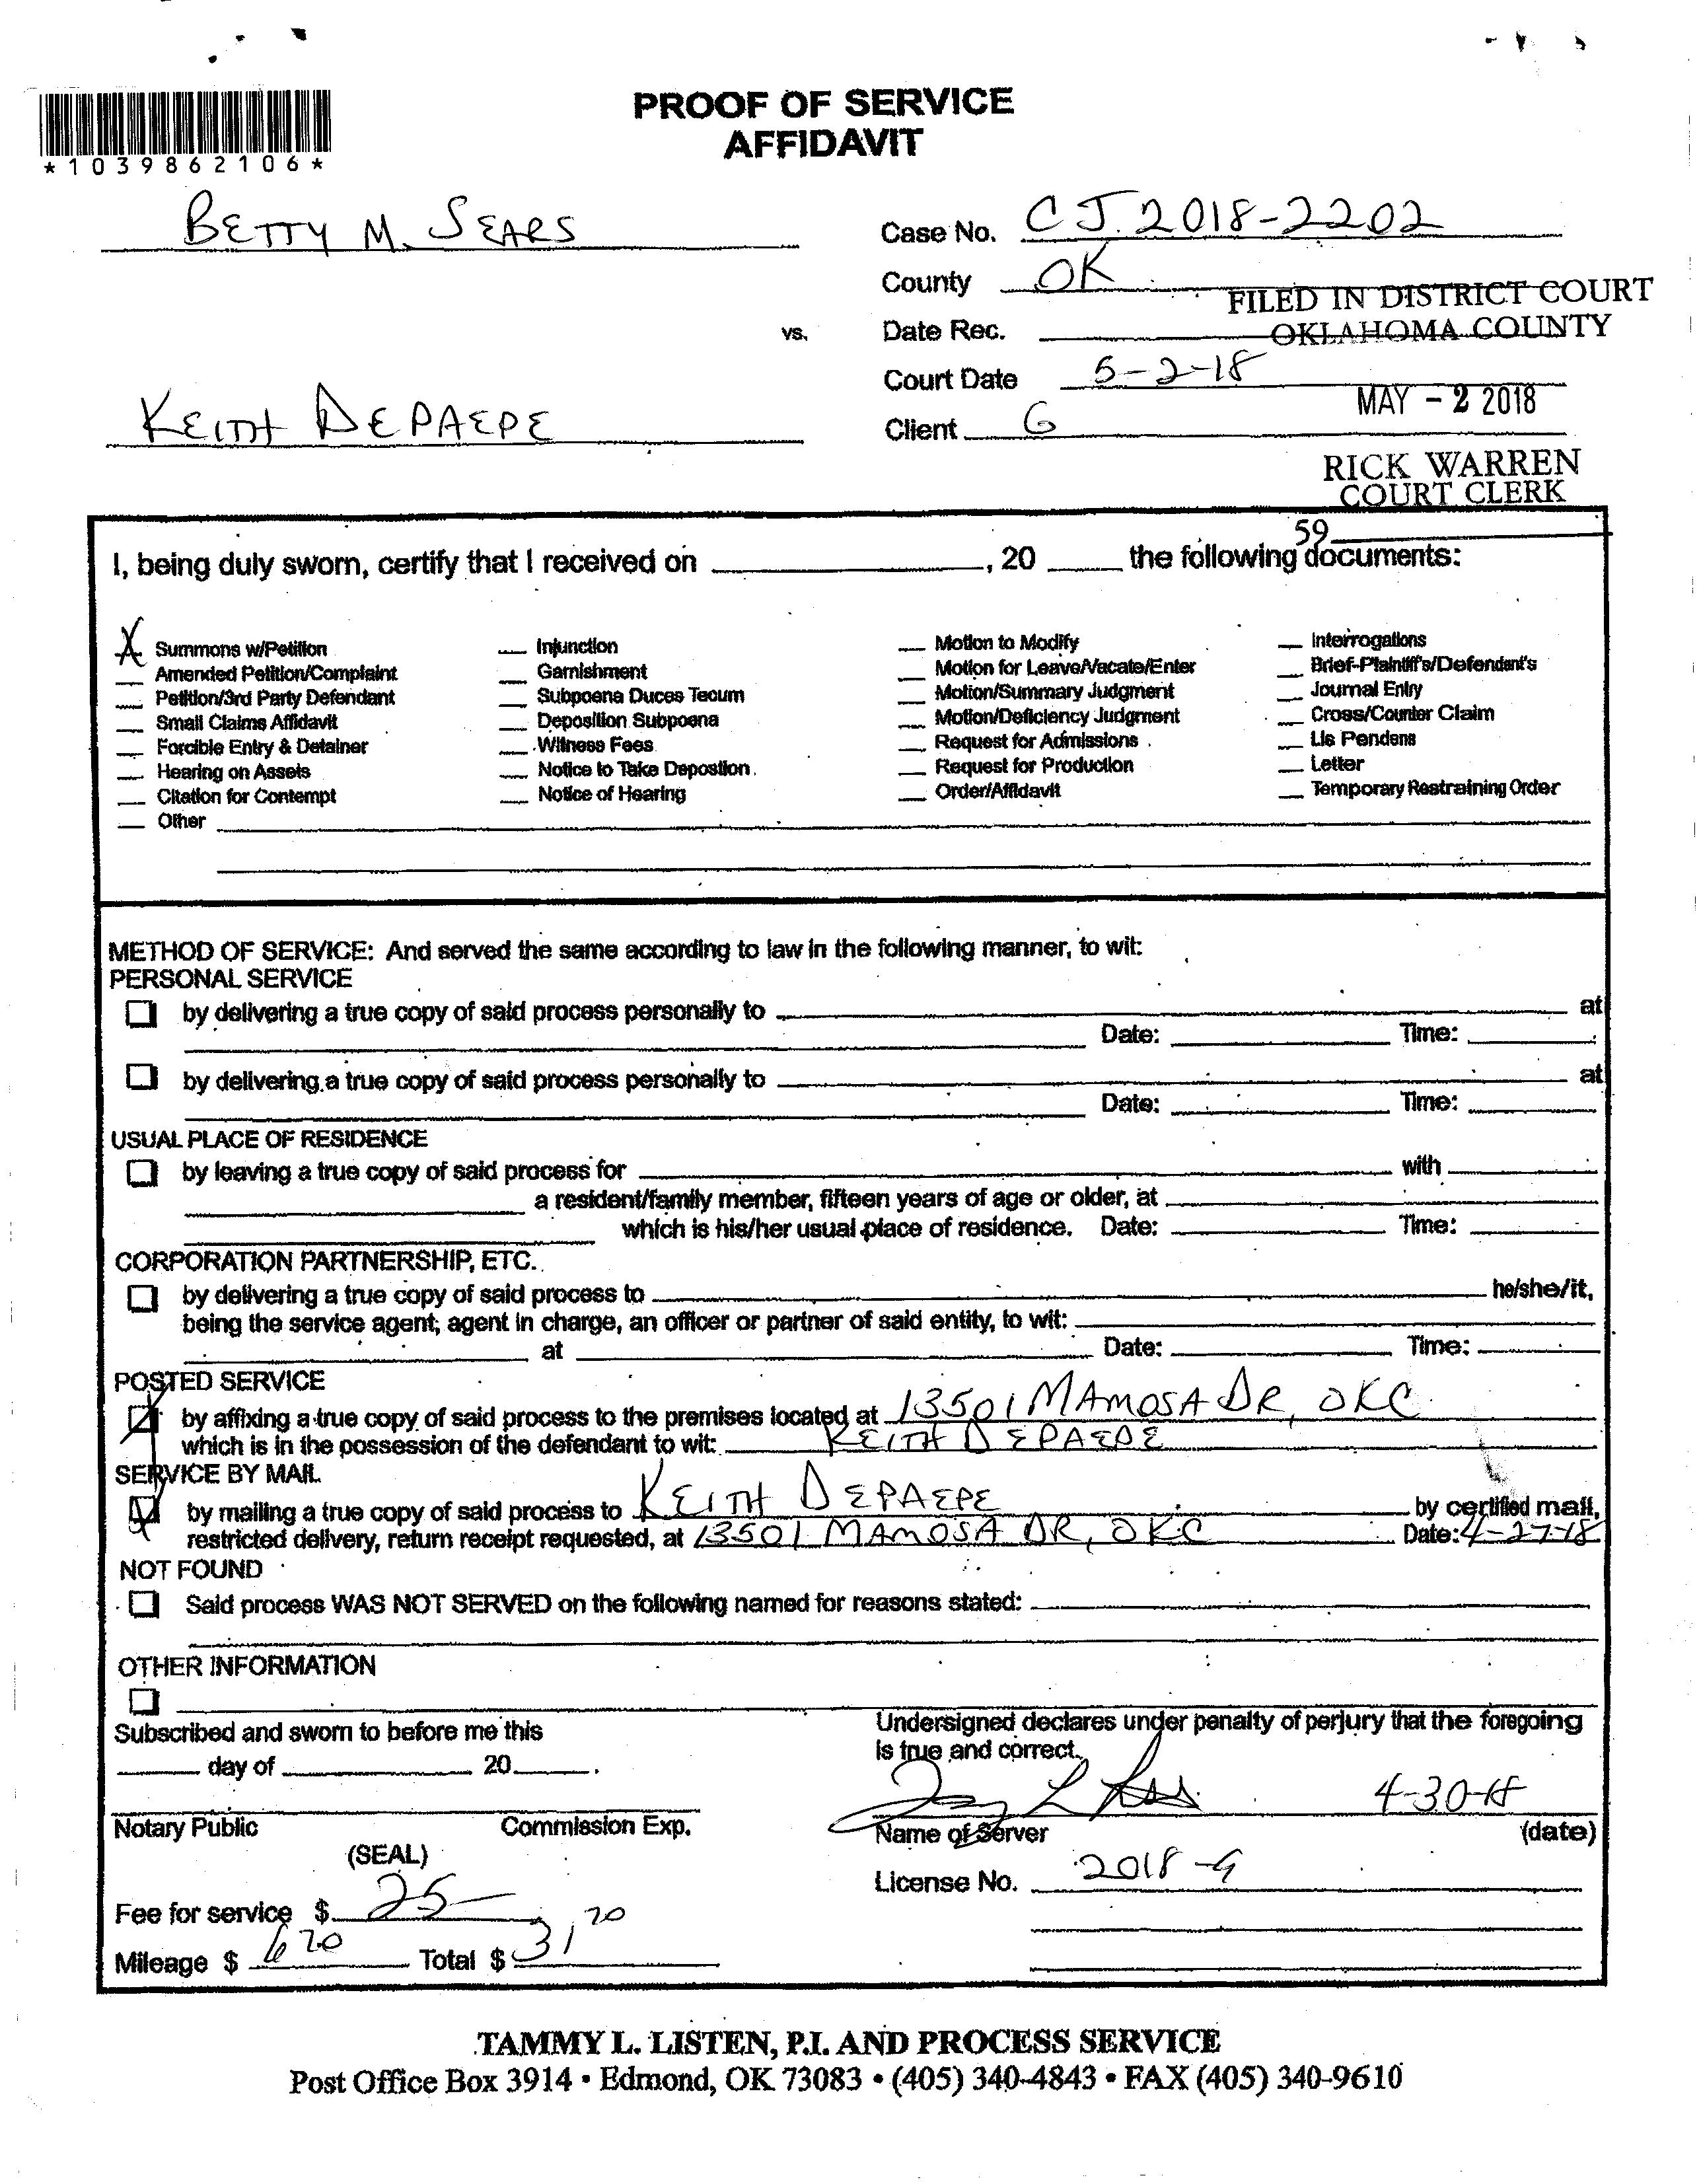 PROOF OF SERVICE
AFFIDAVIT
*1039862106*
BETTY M. SEARS
Case No. CJ. 2018-2202
County OK
FILED IN DISTRICT COURT
vs. Date Rec.
OKLAHOMA COUNTY
Court Date 5-2-18
MAY - 2 2018
KEITH DEPAEPE
Client G
RICK WARREN
COURT CLERK
59
I, being duly sworn, certify that I received on , 20 the following documents:
X Summons w/Petition
Amended Petition/Complaint
Petition/3rd Party Defendant
Small Claims Affidavit
Forcible Entry & Detainer
Hearing on Assets
Citation for Contempt
Other
Injunction
Garnishment
Subpoena Duces Tecum
Deposition Subpoena
Witness Fees
Notice to Take Depostion
Notice of Hearing
Motion to Modify
Motion for Leave/Vacate/Enter
Motion/Summary Judgment
Motion/Deficiency Judgment
Request for Admissions
Request for Production
Order/Affidavit
Interrogations
Brief-Plaintiff's/Defendant's
Journal Entry
Cross/Counter Claim
Lis Pendens
Letter
Temporary Restraining Order
METHOD OF SERVICE: And served the same according to law in the following manner, to wit:
PERSONAL SERVICE
by delivering a true copy of said process personally to at
Date: Time:
by delivering a true copy of said process personally to at
Date: Time:
USUAL PLACE OF RESIDENCE
by leaving a true copy of said process for with
a resident/family member, fifteen years of age or older, at
which is his/her usual place of residence. Date: Time:
CORPORATION PARTNERSHIP, ETC.
by delivering a true copy of said process to he/she/it,
being the service agent, agent in charge, an officer or partner of said entity, to wit:
at Date: Time:
POSTED SERVICE
by affixing a true copy of said process to the premises located at 13501 MAMOSA DR, OKC
which is in the possession of the defendant to wit: KEITH DEPAEPE
SERVICE BY MAIL
by mailing a true copy of said process to KEITH DEPAEPE by certified mail,
restricted delivery, return receipt requested, at 13501 MAMOSA DR, OKC Date: 4-27-18
NOT FOUND
Said process WAS NOT SERVED on the following named for reasons stated:
OTHER INFORMATION
Subscribed and sworn to before me this
day of 20 .
Undersigned declares under penalty of perjury that the foregoing
is true and correct.
4-30-18
Notary Public Commission Exp.
Name of Server (date)
(SEAL)
License No. 2018-9
Fee for service $ 25-
Mileage $ 6 20 Total $ 31.20
TAMMY L. LISTEN, P.I. AND PROCESS SERVICE
Post Office Box 3914 • Edmond, OK 73083 • (405) 340-4843 • FAX (405) 340-9610